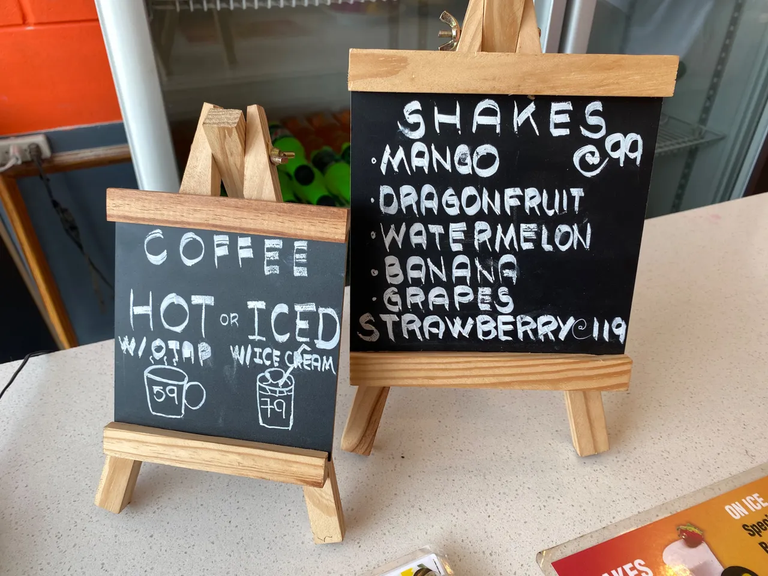 COFFEE
HOT OR ICED
W/OTAP W/ICE CREAM
59 79
SHAKES
•MANGO @99
•DRAGONFRUIT
•WATERMELON
•BANANA
•GRAPES
STRAWBERRY @119
ON ICE